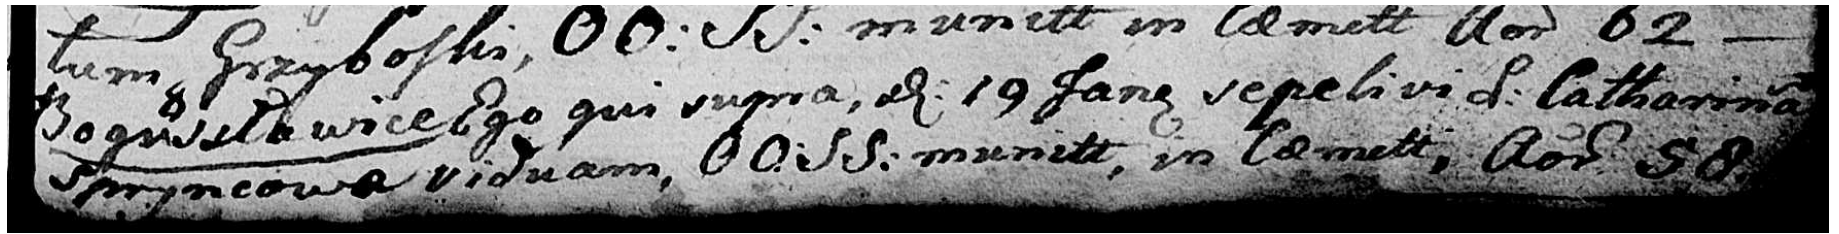 tum, Grzyboski, OO: SS: munitt in Cæmett Aor 62 —
8
Bogusławice Ego qui supra, d: 19 Janę sepelivi L: Catharinā
Spryncowa viduam, OO: SS: munitt, in Cæmett, Aor 58.